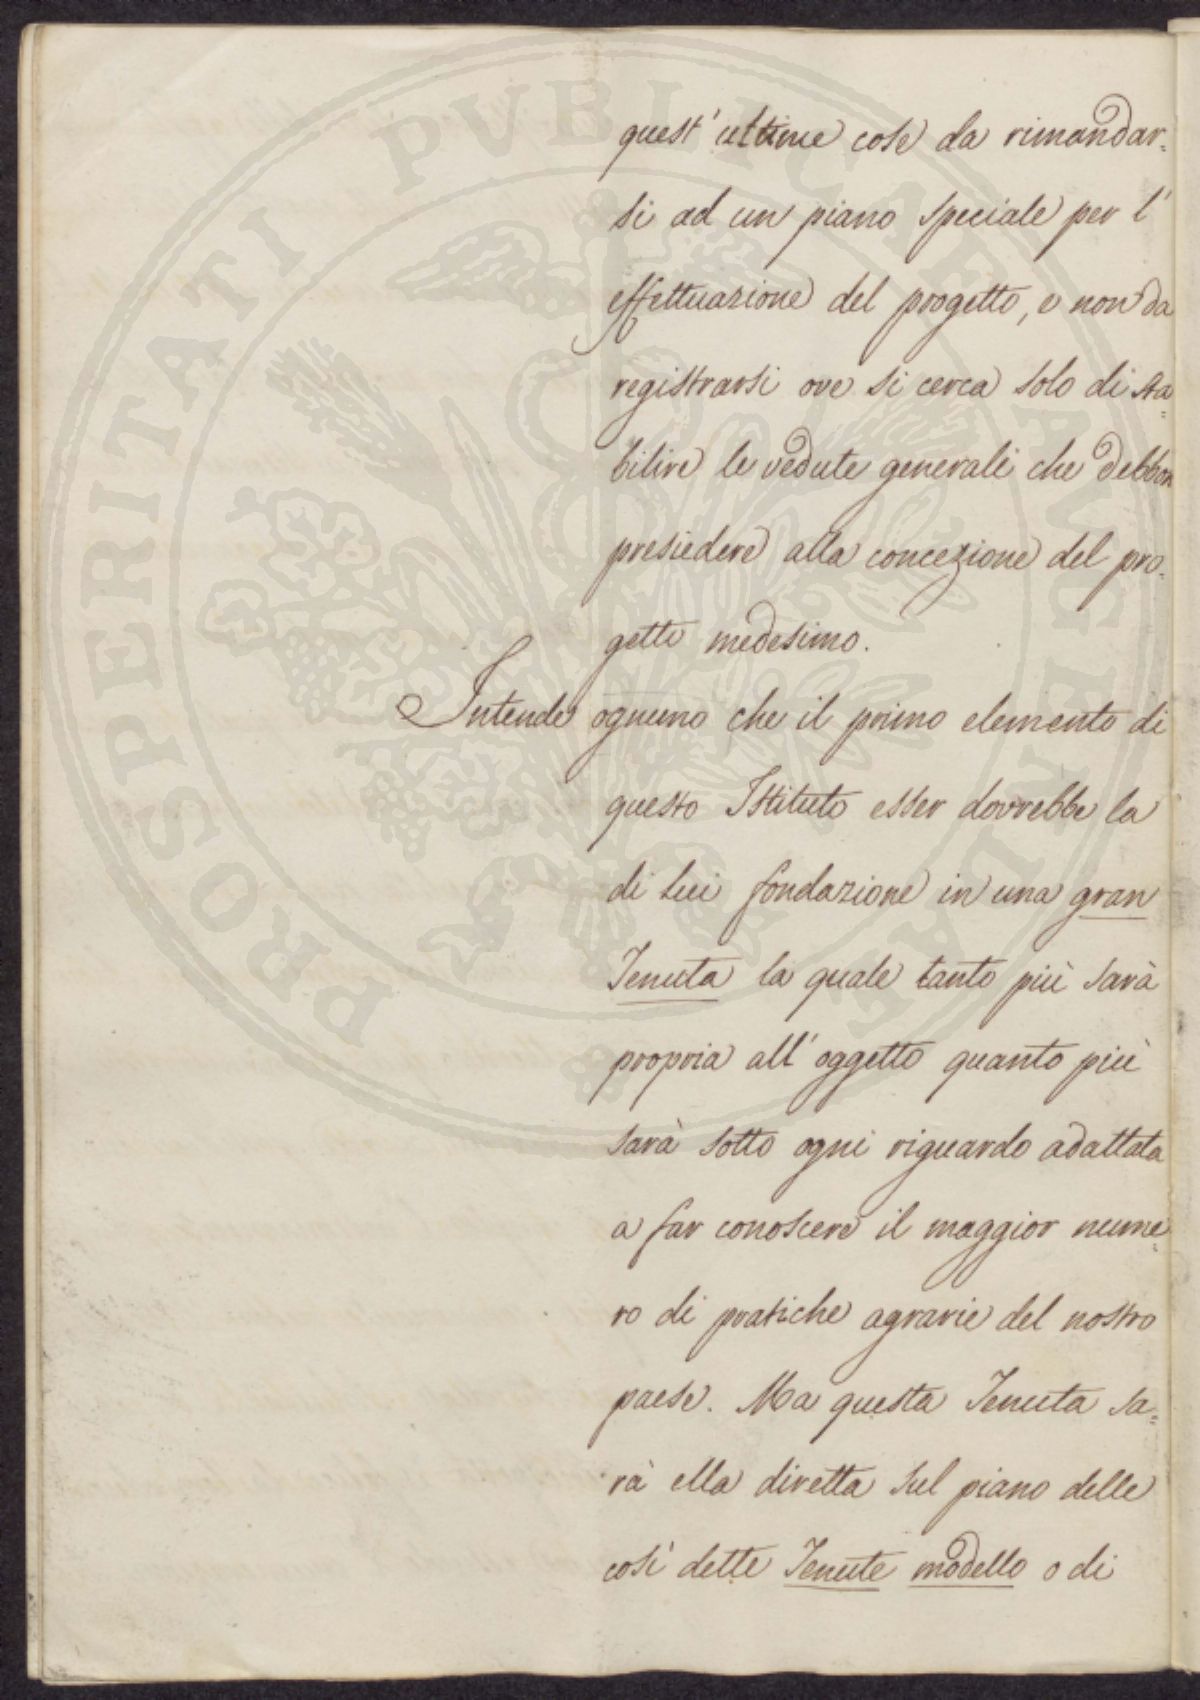 PROSPERITATI PUBLICAE AUGENDAE
quest'ultime cose da rimandar=
si ad un piano speciale per l'
effettuazione del progetto, e non da
registrarsi ove si cerca solo di sta=
bilire le vedute generali che debbon
presiedere alla concezione del pro=
getto medesimo.
Intende ognuno che il primo elemento di
questo Istituto esser dovrebbe la
di lui fondazione in una gran
Tenuta la quale tanto più sarà
propria all'oggetto quanto più
sarà sotto ogni riguardo adattata
a far conoscere il maggior nume=
ro di pratiche agrarie del nostro
paese. Ma questa Tenuta sa=
rà ella diretta sul piano delle
così dette Tenute modello o di